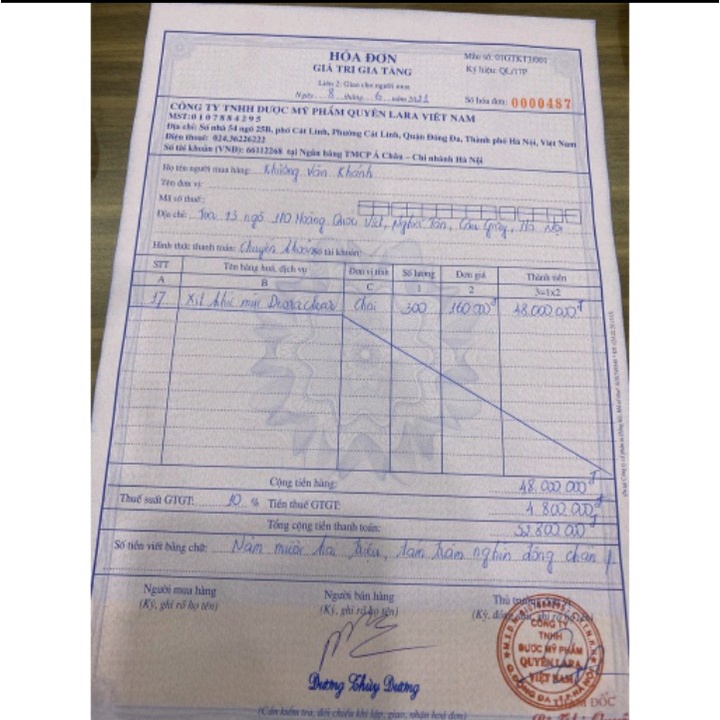 HÓA ĐƠN
GIÁ TRỊ GIA TĂNG
Mẫu số: 01GTKT3/001
Ký hiệu: QL/17P
Liên 2: Giao cho người mua
Ngày 8 tháng 6 năm 2021
Số hóa đơn: 0000487
CÔNG TY TNHH DƯỢC MỸ PHẨM QUYÊN LARA VIỆT NAM
MST: 0107884295
Địa chỉ: Số nhà 54 ngõ 25B, phố Cát Linh, Phường Cát Linh, Quận Đống Đa, Thành phố Hà Nội, Việt Nam
Điện thoại: 024.36226222
Số tài khoản (VNĐ): 66112268 tại Ngân hàng TMCP Á Châu – Chi nhánh Hà Nội
Họ tên người mua hàng: Khương Văn Khánh
Tên đơn vị:
Mã số thuế:
Địa chỉ: Toà 13 ngõ 110 Hoàng Quốc Việt, Nghĩa Tân, Cầu Giấy, Hà Nội
Hình thức thanh toán: Chuyển khoản Số tài khoản:
STT Tên hàng hoá, dịch vụ Đơn vị tính Số lượng Đơn giá Thành tiền
A B C 1 2 3=1x2
17 Xịt khử mùi Chai 300 160000đ 48.000.000đ
Cộng tiền hàng: 48.000.000đ
Thuế suất GTGT: 10 % Tiền thuế GTGT: 4.800.000đ
Tổng cộng tiền thanh toán: 52.800.000đ
Số tiền viết bằng chữ: Năm mươi hai triệu, tám trăm nghìn đồng chẵn
Người mua hàng Người bán hàng Thủ trưởng
(Ký, ghi rõ họ tên) (Ký, ghi rõ họ tên) (Ký, đóng
CÔNG TY
TNHH
DƯỢC MỸ PHẨM
QUYÊN LARA
VIỆT NAM
Q. ĐỐNG ĐA T.P. HÀ NỘI
Dương Thùy Dương
GIÁM ĐỐC
(Cần kiểm tra, đối chiếu khi lập, giao, nhận hoá đơn)